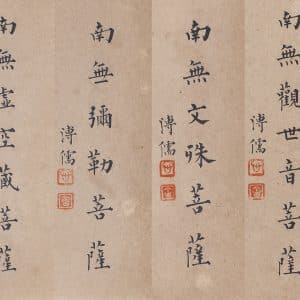 南無觀世音菩薩
溥儒
南無文殊菩薩
溥儒
南無彌勒菩薩
溥儒
南無虛空藏菩薩